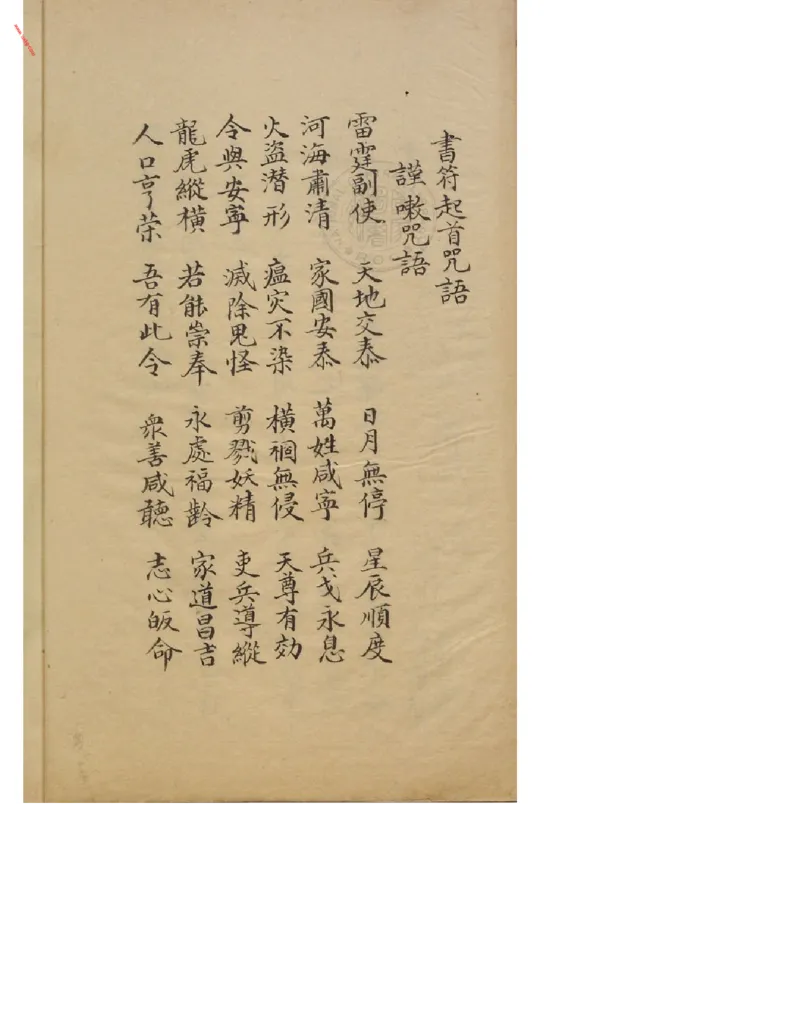 書符起首咒語
謹嗽咒語
雷霆副使 天地交泰 日月無停 星辰順度
河海肅清 家國安泰 萬姓咸寧 兵戈永息
火盜潛形 瘟灾不染 橫禍無侵 天尊有効
令與安寧 滅除鬼怪 剪戮妖精 吏兵導縱
龍虎縱橫 若能崇奉 永處福齡 家道昌吉
人口亨荣 吾有此令 衆善咸聽 志心皈命